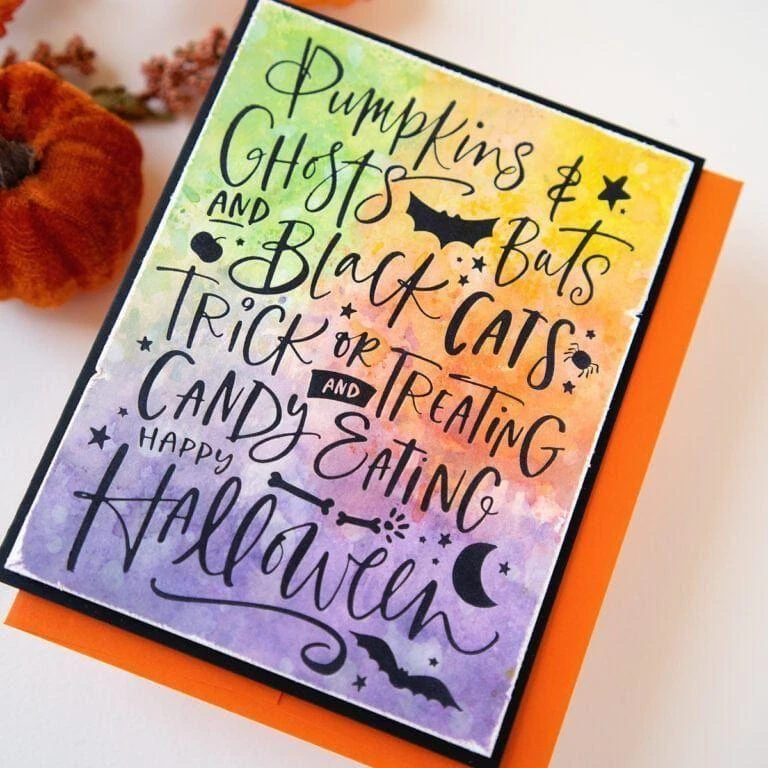 Pumpkins &
Ghosts Bats
AND
Black CATS
TRICK OR TREATING
CANDY AND EATING
HAPPY
Halloween